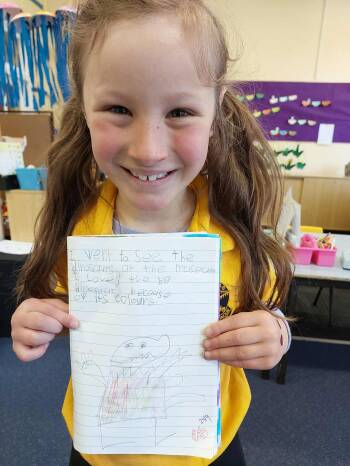 I went to see the
dinosaurs at the museum
I Loved the
dinosaur because
of its colours.